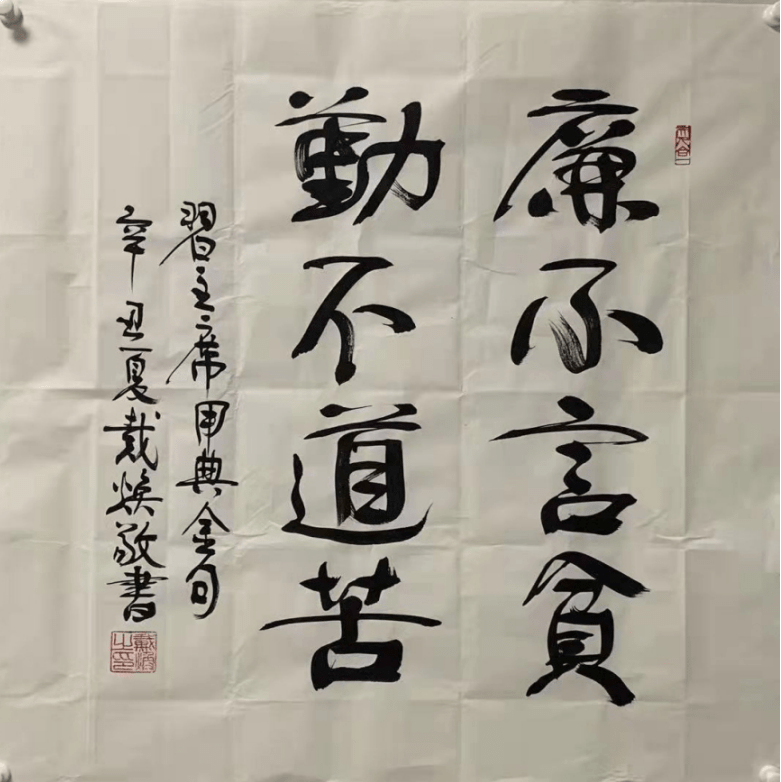 廉不言貧
勤不道苦
習主席用典金句
辛丑夏戴煥敬書